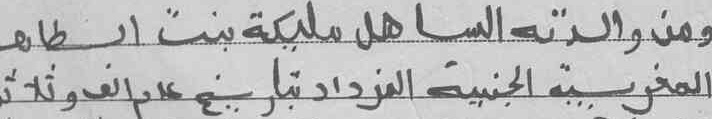 ومن والدته الساهل مليكة بنت الطاهـ
المغربية الجنسية المزداد بتاريخ عام الف وثلاثـ